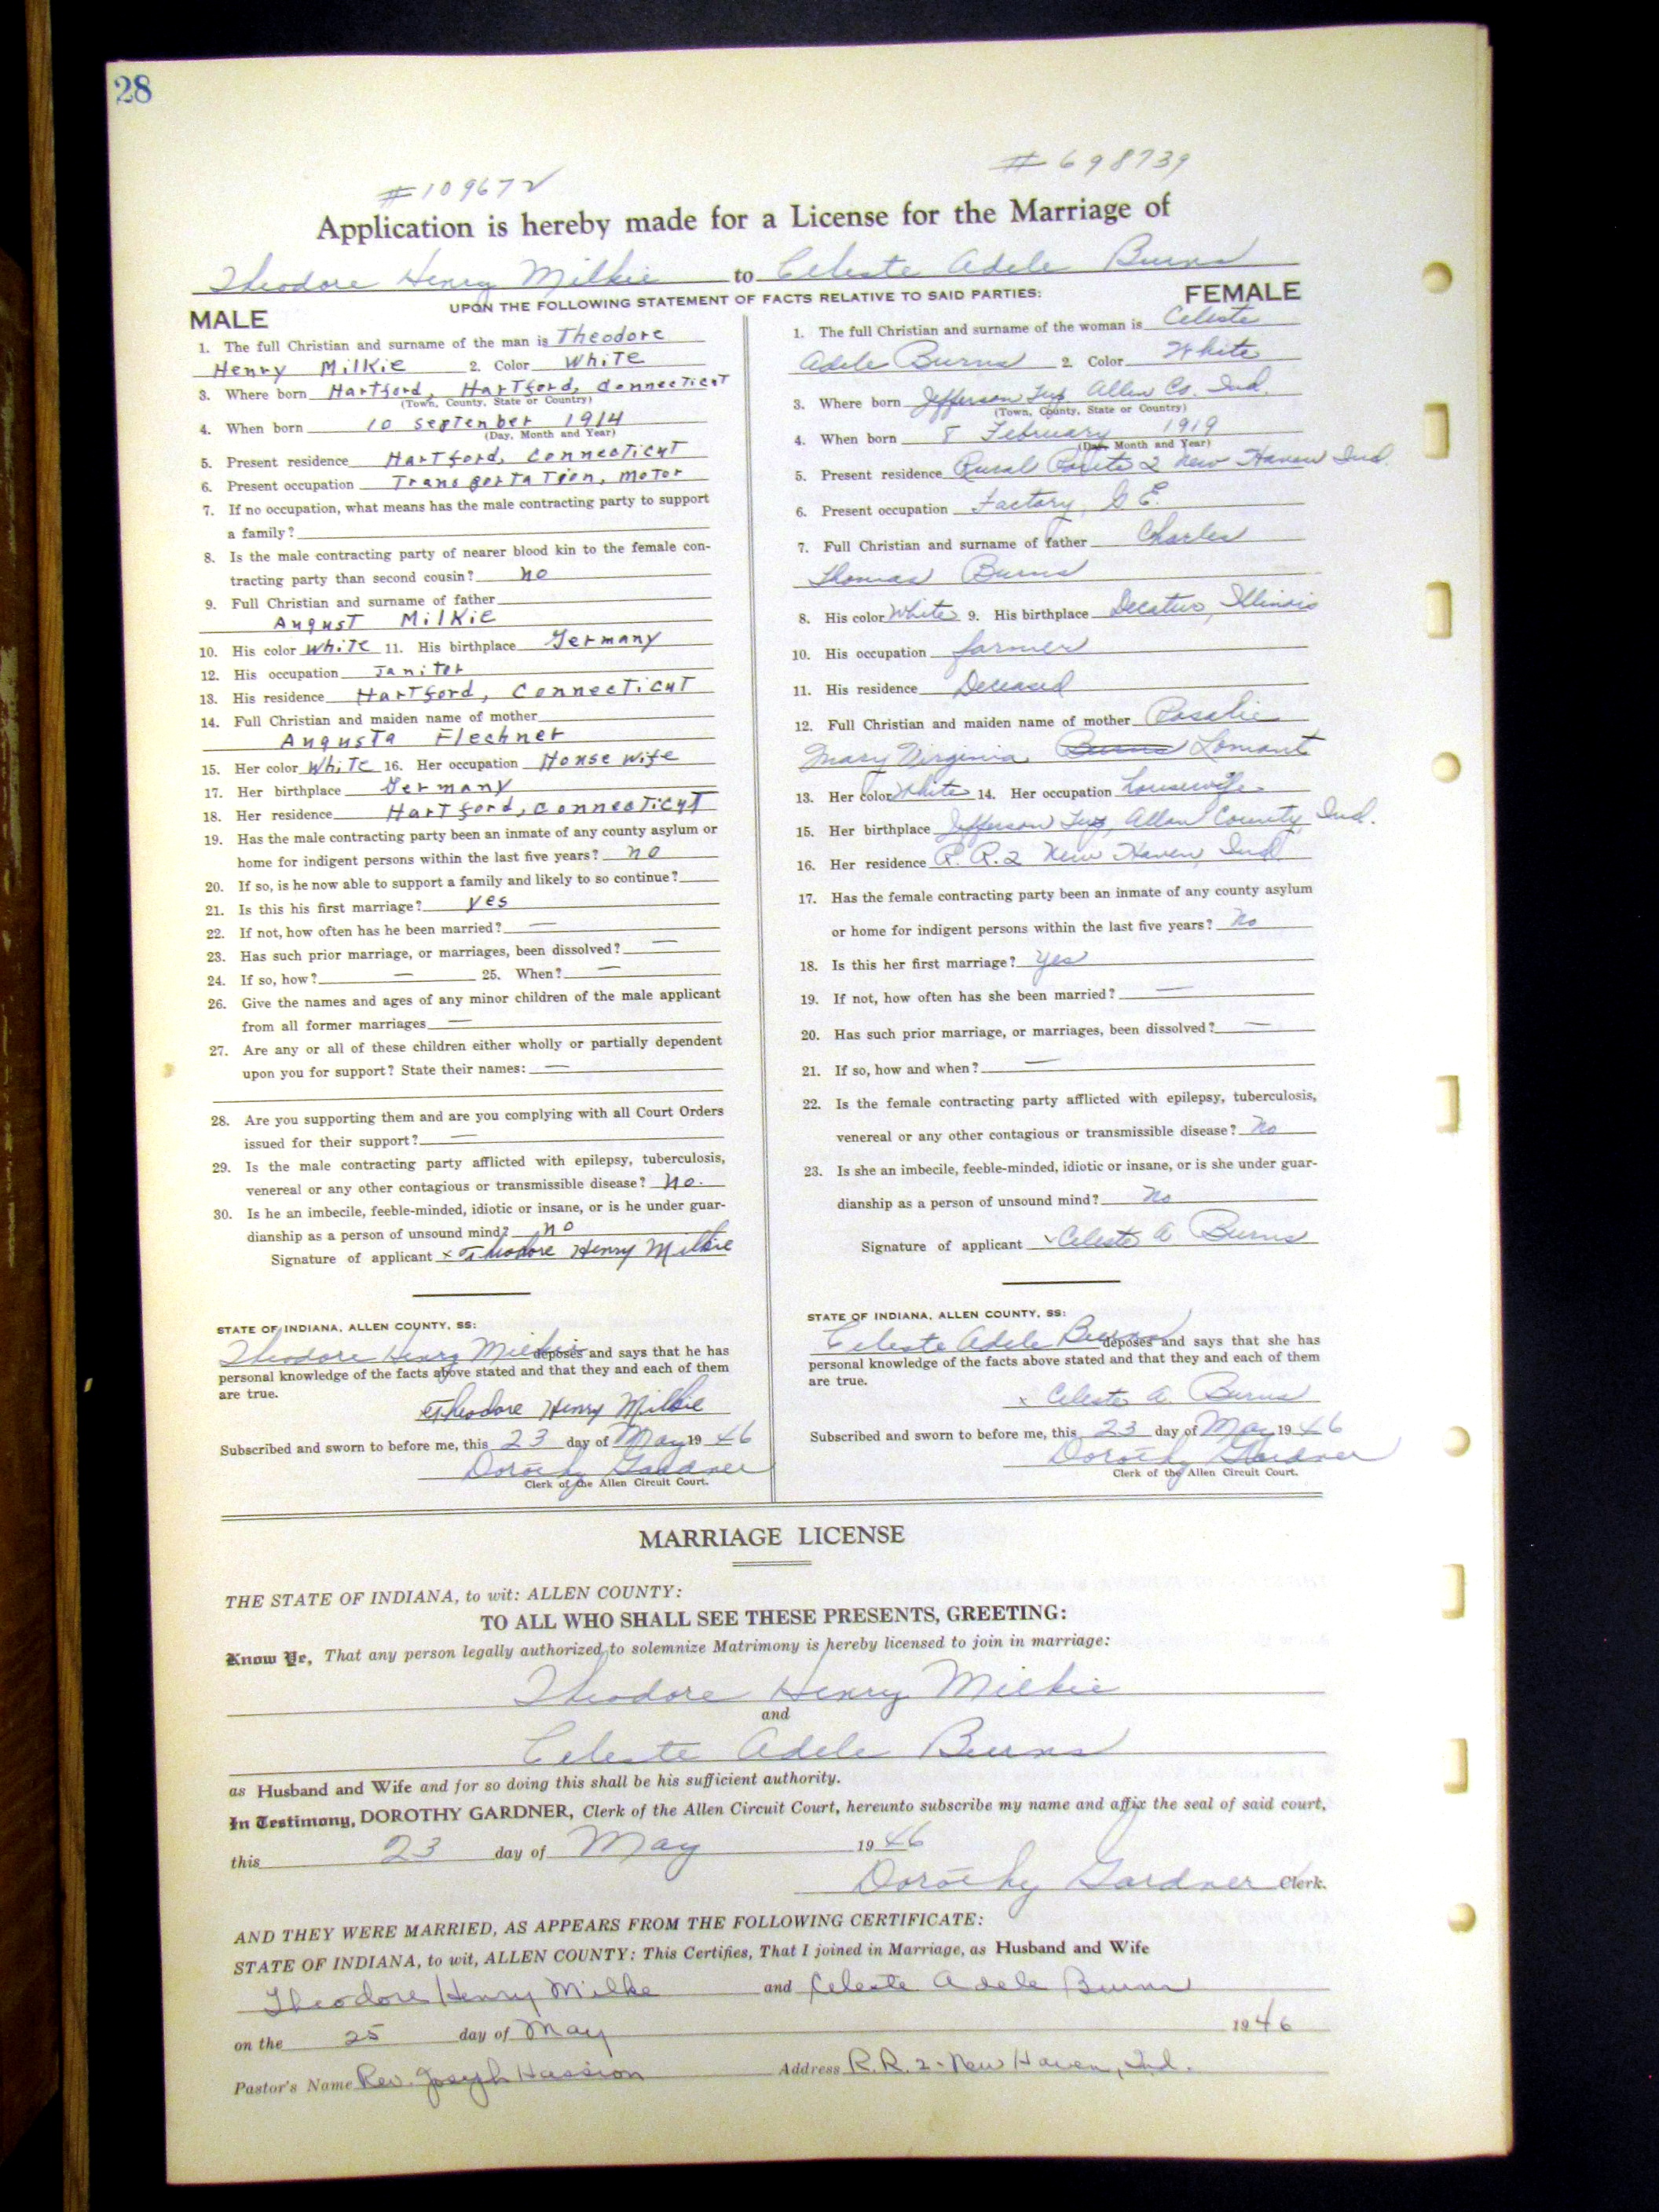 28
#109672
#698739
Application is hereby made for a License for the Marriage of
Theodore Henry Milkie to Celeste Adele Burns
UPON THE FOLLOWING STATEMENT OF FACTS RELATIVE TO SAID PARTIES:
MALE
1. The full Christian and surname of the man is Theodore
Henry Milkie 2. Color White
3. Where born Hartford, Hartford, Connecticut
(Town, County, State or Country)
4. When born 10 September 1914
(Day, Month and Year)
5. Present residence Hartford, Connecticut
6. Present occupation Transportation, Motor
7. If no occupation, what means has the male contracting party to support
a family?
8. Is the male contracting party of nearer blood kin to the female con-
tracting party than second cousin? no
9. Full Christian and surname of father
August Milkie
10. His color White 11. His birthplace Germany
12. His occupation Janitor
13. His residence Hartford, Connecticut
14. Full Christian and maiden name of mother
Augusta Flechner
15. Her color White 16. Her occupation House wife
17. Her birthplace Germany
18. Her residence Hartford, Connecticut
19. Has the male contracting party been an inmate of any county asylum or
home for indigent persons within the last five years? no
20. If so, is he now able to support a family and likely to so continue?
21. Is this his first marriage? yes
22. If not, how often has he been married? —
23. Has such prior marriage, or marriages, been dissolved? —
24. If so, how? — 25. When? —
26. Give the names and ages of any minor children of the male applicant
from all former marriages —
27. Are any or all of these children either wholly or partially dependent
upon you for support? State their names: —
28. Are you supporting them and are you complying with all Court Orders
issued for their support? —
29. Is the male contracting party afflicted with epilepsy, tuberculosis,
venereal or any other contagious or transmissible disease? no.
30. Is he an imbecile, feeble-minded, idiotic or insane, or is he under guar-
dianship as a person of unsound mind? no
Signature of applicant x Theodore Henry Milkie
STATE OF INDIANA, ALLEN COUNTY, SS:
Theodore Henry Milkie deposes and says that he has
personal knowledge of the facts above stated and that they and each of them
are true.
x Theodore Henry Milkie
Subscribed and sworn to before me, this 23 day of May 19 46
Dorothy Gardner
Clerk of the Allen Circuit Court.
FEMALE
1. The full Christian and surname of the woman is Celeste
Adele Burns 2. Color White
3. Where born Jefferson Twp Allen Co. Ind.
(Town, County, State or Country)
4. When born 8 February 1919
(Day, Month and Year)
5. Present residence Rural Route 2 New Haven Ind.
6. Present occupation Factory, G E.
7. Full Christian and surname of father Charles
Thomas Burns
8. His color White 9. His birthplace Decatur, Illinois
10. His occupation farmer
11. His residence Deceased
12. Full Christian and maiden name of mother Rosalie
Mary Virginia Burns Lomont
13. Her color White 14. Her occupation housewife
15. Her birthplace Jefferson Twp, Allen County, Ind.
16. Her residence R. R. 2 New Haven, Ind
17. Has the female contracting party been an inmate of any county asylum
or home for indigent persons within the last five years? no
18. Is this her first marriage? yes
19. If not, how often has she been married? —
20. Has such prior marriage, or marriages, been dissolved? —
21. If so, how and when? —
22. Is the female contracting party afflicted with epilepsy, tuberculosis,
venereal or any other contagious or transmissible disease? no
23. Is she an imbecile, feeble-minded, idiotic or insane, or is she under guar-
dianship as a person of unsound mind? no
Signature of applicant x Celeste A Burns
STATE OF INDIANA, ALLEN COUNTY, SS:
Celeste Adele Burns deposes and says that she has
personal knowledge of the facts above stated and that they and each of them
are true.
x Celeste A. Burns
Subscribed and sworn to before me, this 23 day of May 19 46
Dorothy Gardner
Clerk of the Allen Circuit Court.
MARRIAGE LICENSE
THE STATE OF INDIANA, to wit: ALLEN COUNTY:
TO ALL WHO SHALL SEE THESE PRESENTS, GREETING:
Know Ye, That any person legally authorized to solemnize Matrimony is hereby licensed to join in marriage:
Theodore Henry Milkie
and
Celeste Adele Burns
as Husband and Wife and for so doing this shall be his sufficient authority.
In Testimony, DOROTHY GARDNER, Clerk of the Allen Circuit Court, hereunto subscribe my name and affix the seal of said court,
this 23 day of May 19 46
Dorothy Gardner Clerk.
AND THEY WERE MARRIED, AS APPEARS FROM THE FOLLOWING CERTIFICATE:
STATE OF INDIANA, to wit, ALLEN COUNTY: This Certifies, That I joined in Marriage, as Husband and Wife
Theodore Henry Milke and Celeste Adele Burns
on the 25 day of May 1946
Pastor's Name Rev. Joseph Hession Address R.R. 2 - New Haven, Ind.